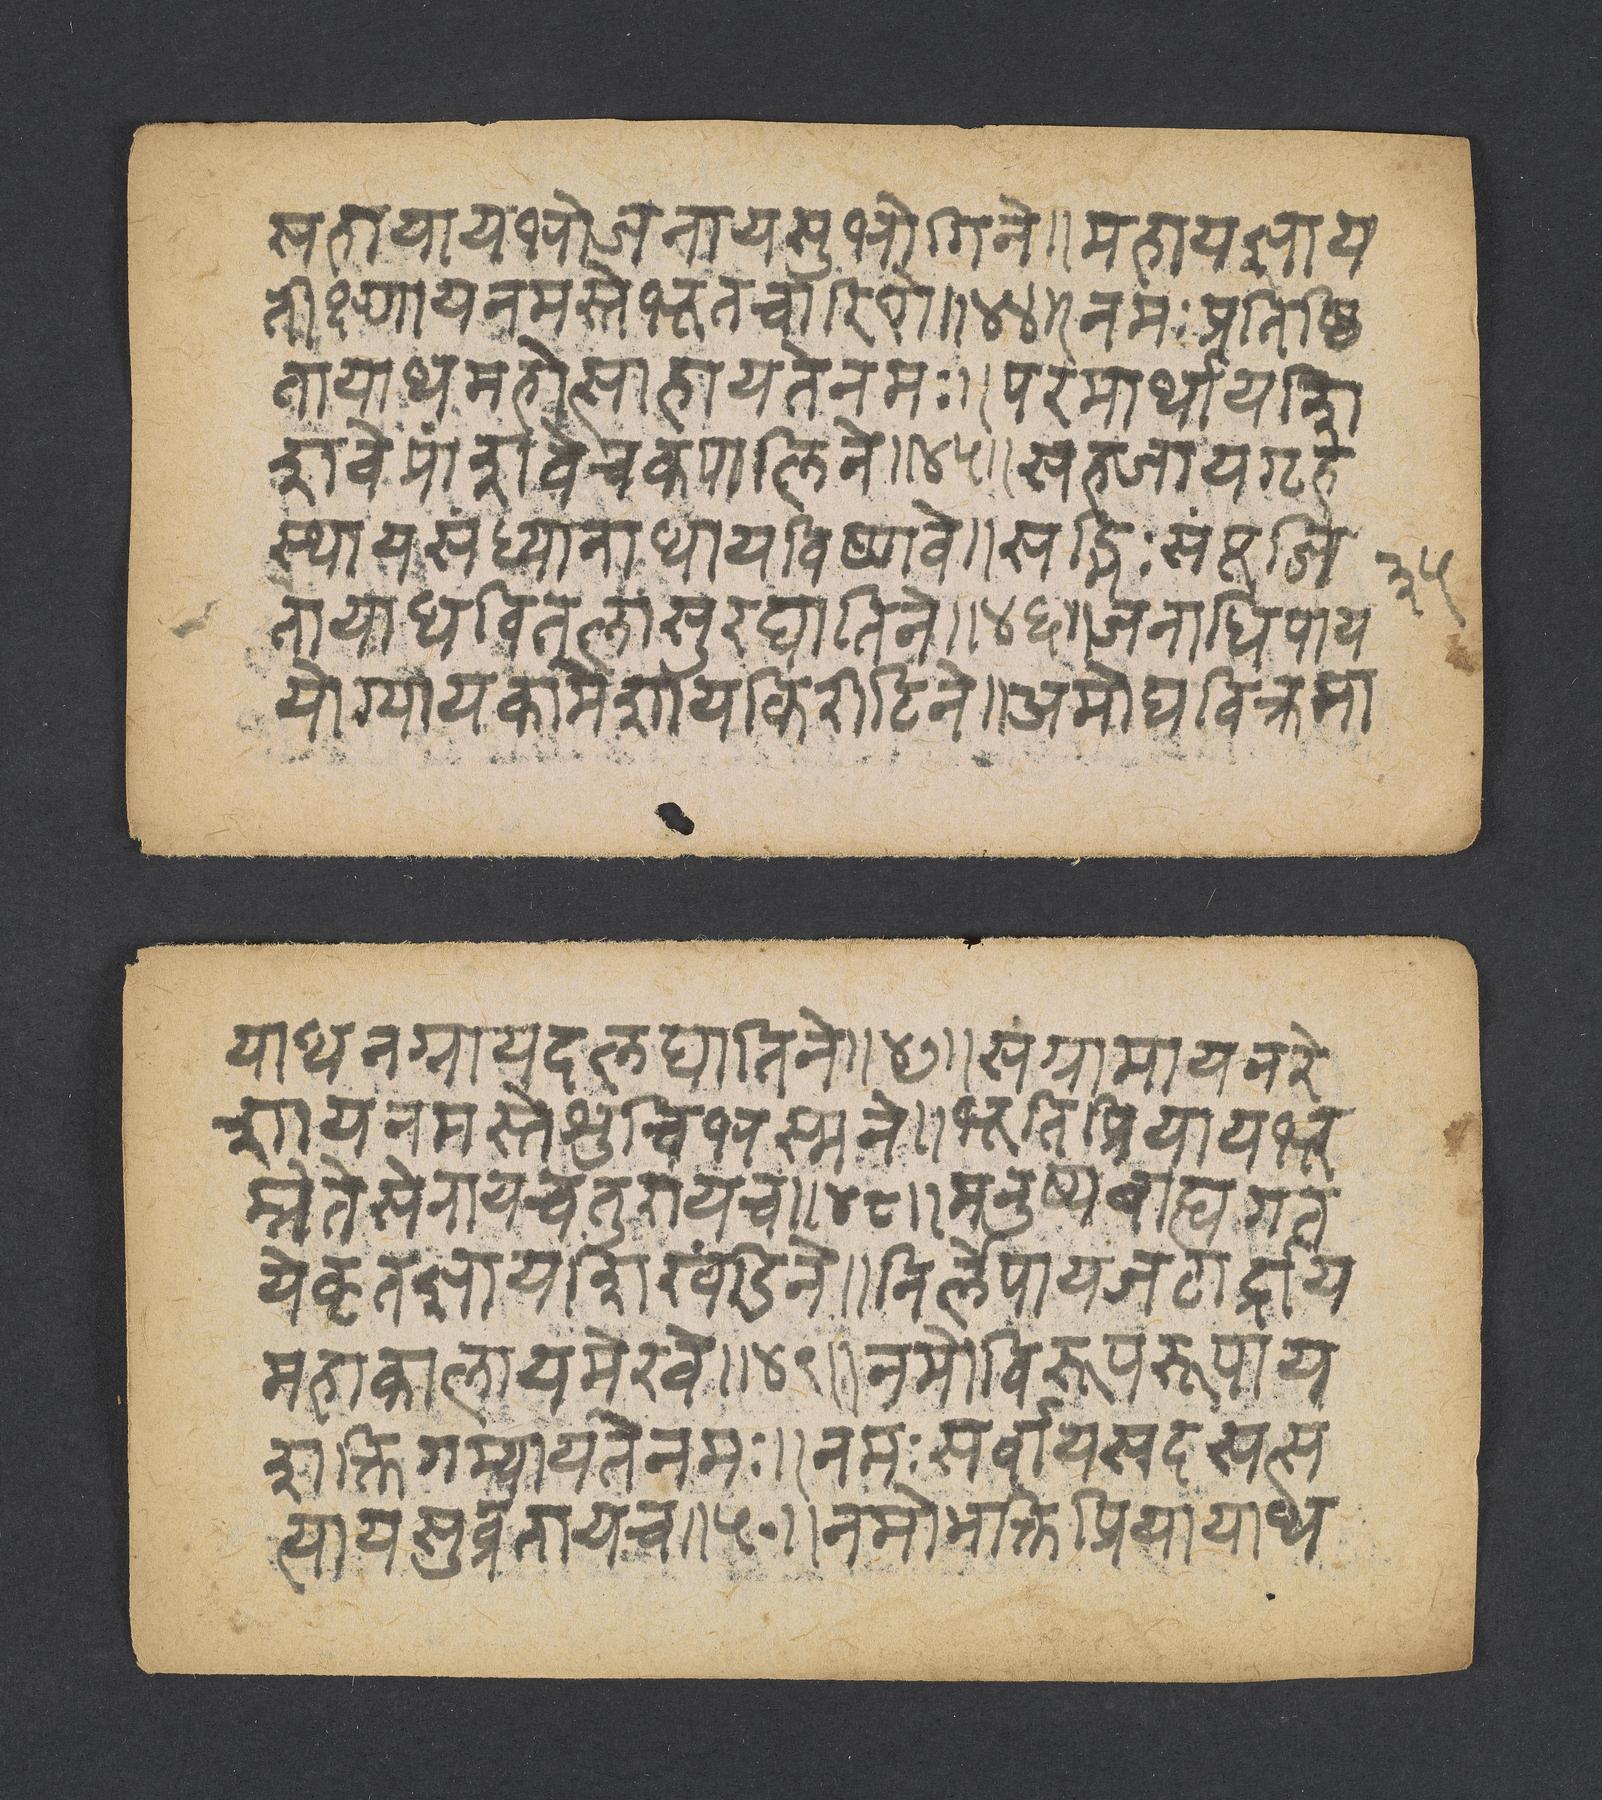 सहायायभोजनायसुभोगिने॥महायक्षाय
तीक्ष्णायनमस्तेभूतचारिणे॥४४॥नमःप्रतिष्ठि
तायाथमहोत्साहायतेनमः॥परमार्थायशि
शवेप्रांशवेचकपालिने॥४५॥सहजायगृह
स्थायसंध्यानाथायविष्णवे॥सद्भिःसंपूजि
३५
तायाथवितलासुरघातिने॥४६॥जनाधिपाय
योग्यायकामेशायकिरीटिने॥अमोघविक्रमा
याथनग्नायदलघातिने॥४७॥संग्रामायनरे
शायनमस्तेशुचिभस्मने॥भूतिप्रियायभू
म्नेतेसेनायचतुरायच॥४८॥मनुष्यबाह्यगत
येकृतज्ञायशिखंडिने॥निर्लेपायजटार्द्राय
महाकालायमेरवे॥४९॥नमोविरूपरूपाय
शक्तिगम्यायतेनमः॥नमःसर्वायसदसत्स
त्यायसुव्रतायच॥५०॥नमोभक्तिप्रियायाथ